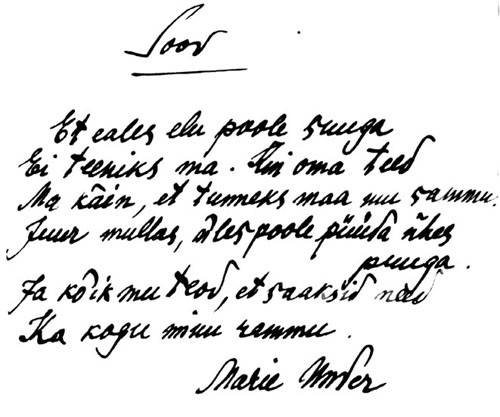 Soov
Et eales elu poole suuga
Ei teeniks ma. Kui oma teed
Ma käin, et tunneks maa mu sammu.
Juur mullas, üles poole püüda ühes
puuga.
Ja kõik mu teod, et saaksid need
Ka kogu minu rammu.
Marie Under